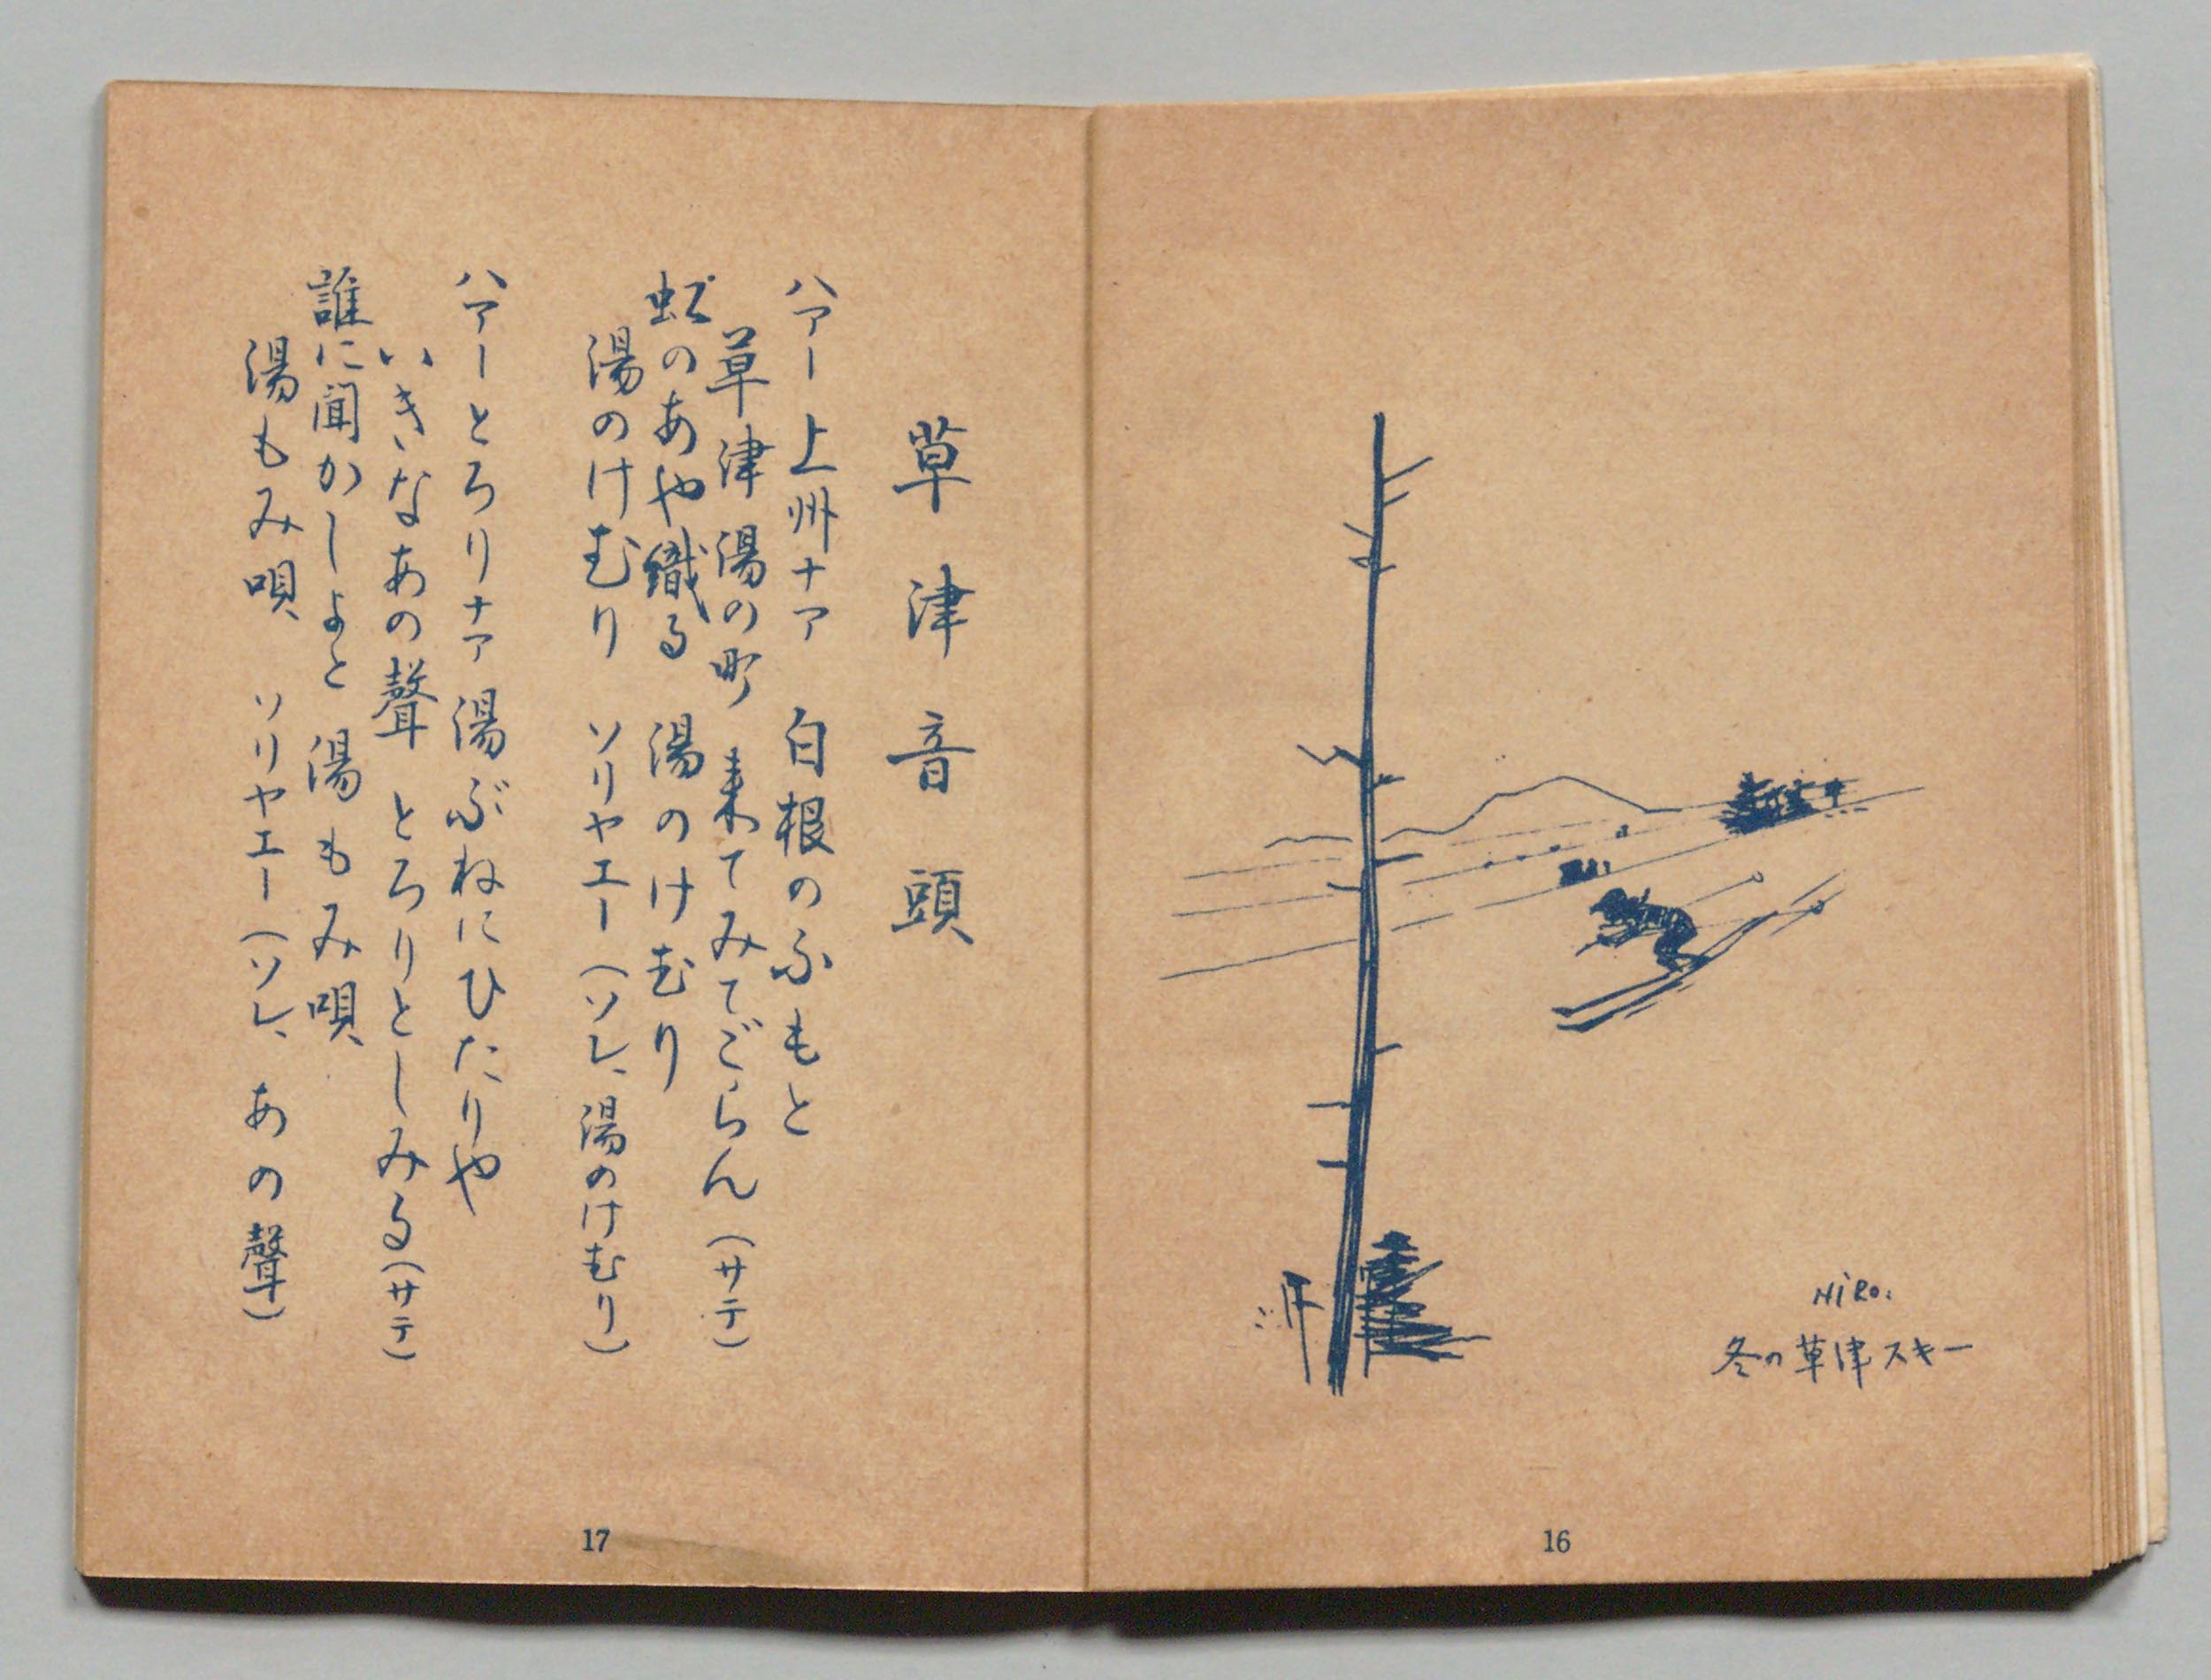 HIRO.
冬の草津スキー
16
草津音頭
ハアー上州ナア 白根のふもと
草津湯の町 来てみてごらん(サテ)
虹のあや織る 湯のけむり
湯のけむり ソリヤエー(ソレ、湯のけむり)
ハアーとろりナア湯ぶねにひたりや
いきなあの聲 とろりとしみる(サテ)
誰に聞かしよと 湯もみ唄、
湯もみ唄、 ソリヤエー(ソレ、あの聲)
17